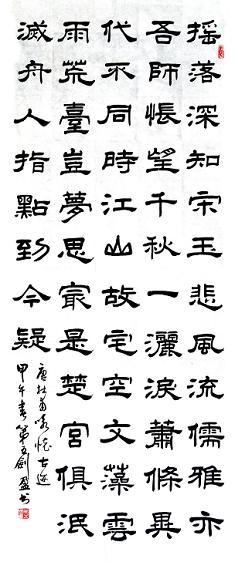 搖落深知宋玉悲風流儒雅亦
吾師悵望千秋一灑淚蕭條異
代不同時江山故宅空文藻雲
雨荒臺豈夢思最是楚宮俱泯
滅舟人指點到今疑
唐杜甫詠懷古迹
甲午春第五劍盈书